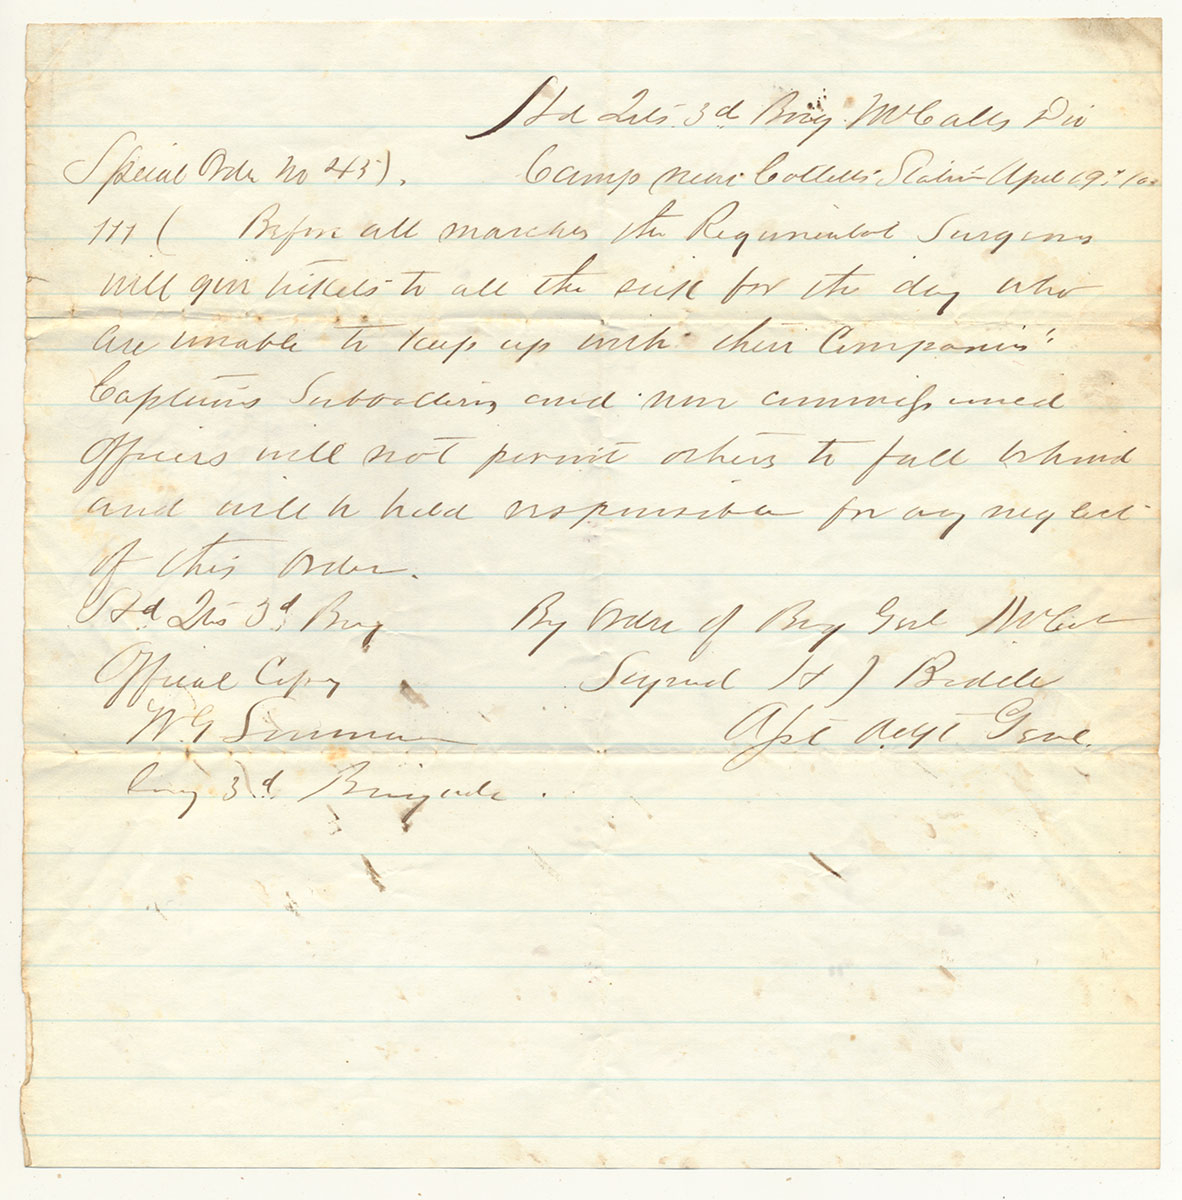 Hd Qrts. 3d Brig. McCalls Div
Special Order No 45). Camp near Catletts Station April 19th
III ( Before all marches the Regimental Surgeons
will give tickets to all the sick for the day who
are unable to keep up with their Companies.
Captains Subordins and non commissioned
Officers will not permit others to fall behind
and will be held responsible for any neglect
of this Order.
Hd. Qrs 3d. Brig By Order of Brig Genl McCall
Official Copy Signed H J Biddle
W. G. Asst Adgt Genl.
3d. Brigade.